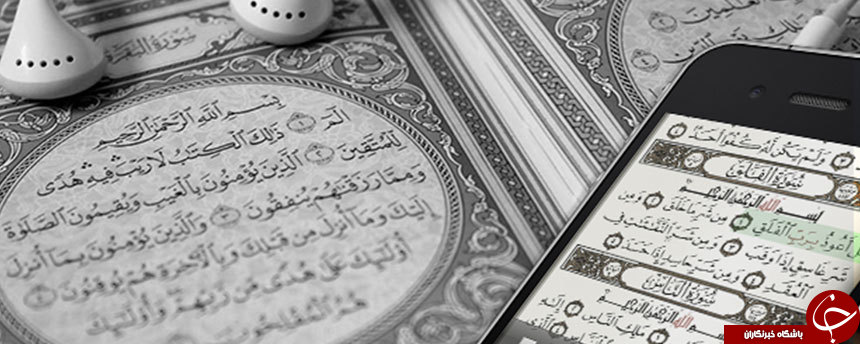 سُورَةُ البَقَرَةِ
بِسْمِ اللَّهِ الرَّحْمَٰنِ الرَّحِيمِ
الٓمٓ ۝١ ذَٰلِكَ ٱلْكِتَٰبُ لَا رَيْبَ فِيهِ هُدًى
لِّلْمُتَّقِينَ ۝٢ ٱلَّذِينَ يُؤْمِنُونَ بِٱلْغَيْبِ وَيُقِيمُونَ ٱلصَّلَوٰةَ
وَمِمَّا رَزَقْنَٰهُمْ يُنفِقُونَ ۝٣ وَٱلَّذِينَ يُؤْمِنُونَ بِمَآ أُنزِلَ
إِلَيْكَ وَمَآ أُنزِلَ مِن قَبْلِكَ وَبِٱلْءَاخِرَةِ هُمْ يُوقِنُونَ ۝٤
أُو۟لَٰٓئِكَ عَلَىٰ هُدًى مِّن رَّبِّهِمْ وَأُو۟لَٰٓئِكَ
هُمُ ٱلْمُفْلِحُونَ
وَلَمْ يَكُن لَّهُ كُفُوًا أَحَدٌ
سُورَةُ الفَلَقِ
بِسْمِ اللَّهِ الرَّحْمَٰنِ الرَّحِيمِ
أَعُوذُ بِرَبِّ ٱلْفَلَقِ ۝١ مِن شَرِّ مَا خَلَقَ ۝٢ وَمِن
شَرِّ غَاسِقٍ إِذَا وَقَبَ ۝٣ وَمِن شَرِّ ٱلنَّفَّٰثَٰتِ فِى
ٱلْعُقَدِ ۝٤ وَمِن شَرِّ حَاسِدٍ إِذَا حَسَدَ ۝٥
سُورَةُ النَّاسِ
بِسْمِ اللَّهِ الرَّحْمَٰنِ الرَّحِيمِ
مَلِكِ ٱلنَّاسِ ۝٢ إِلَٰهِ
باشگاه خبرنگاران